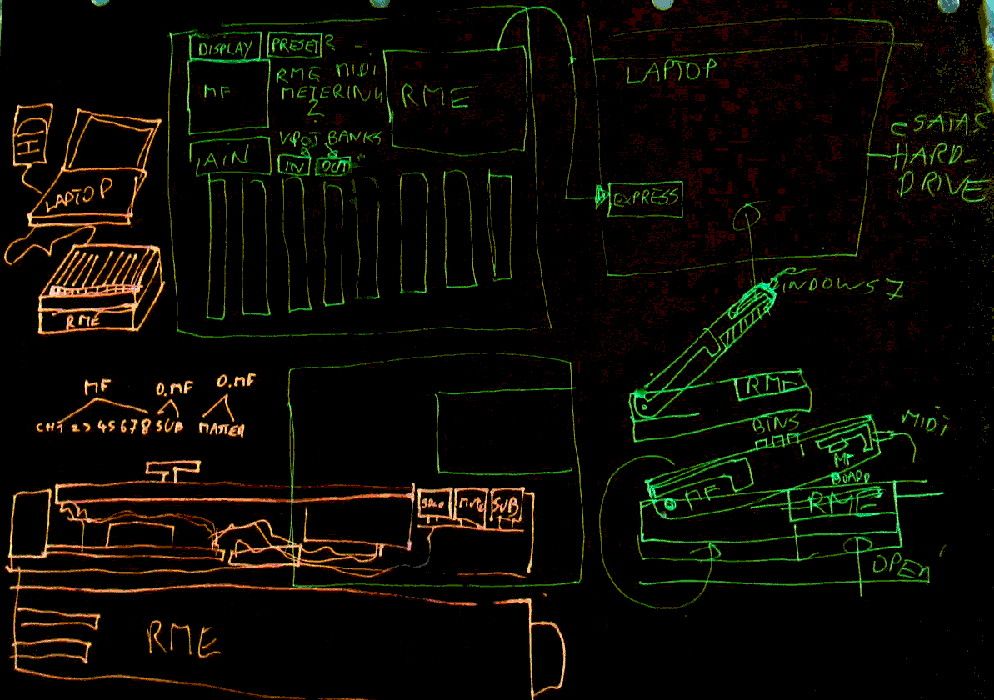 DISPLAY PRESET
MF
RME MIDI
METERING
2
RME
LAPTOP
MAIN
VPOT BANKS
IN OUT
EXPRESS
eSATA
HARD-
DRIVE
LAPTOP
RME
WINDOWS 7
MF D.MF D.MF
CH1 2 3 4 5 6 7 8 SUB MASTER
RME
BINS
MIDI
MF
BOARD
MF
RME
MUTE SUB
OPEN
RME